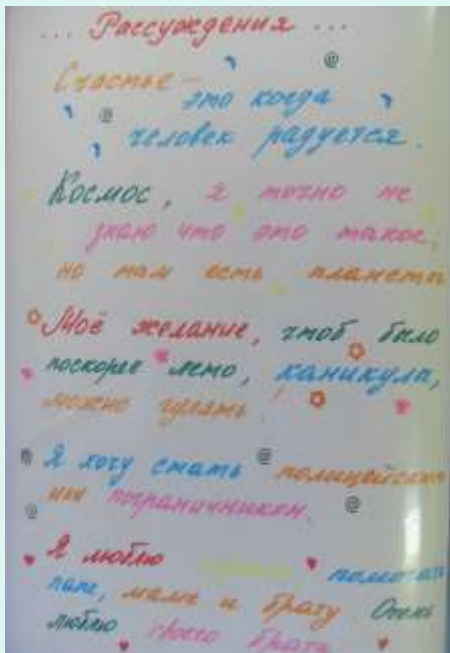 ... Рассуждения ...
Счастье –
это когда
человек радуется.
Космос, я точно не
знаю что это такое,
но там есть планеты
Моё желание, чтоб было
поскорее лето, каникула,
можно гулять!
Я хочу стать полицейским
или пограничником.
Я люблю помогать
папе, маме и брату. Очень
люблю своего брата.